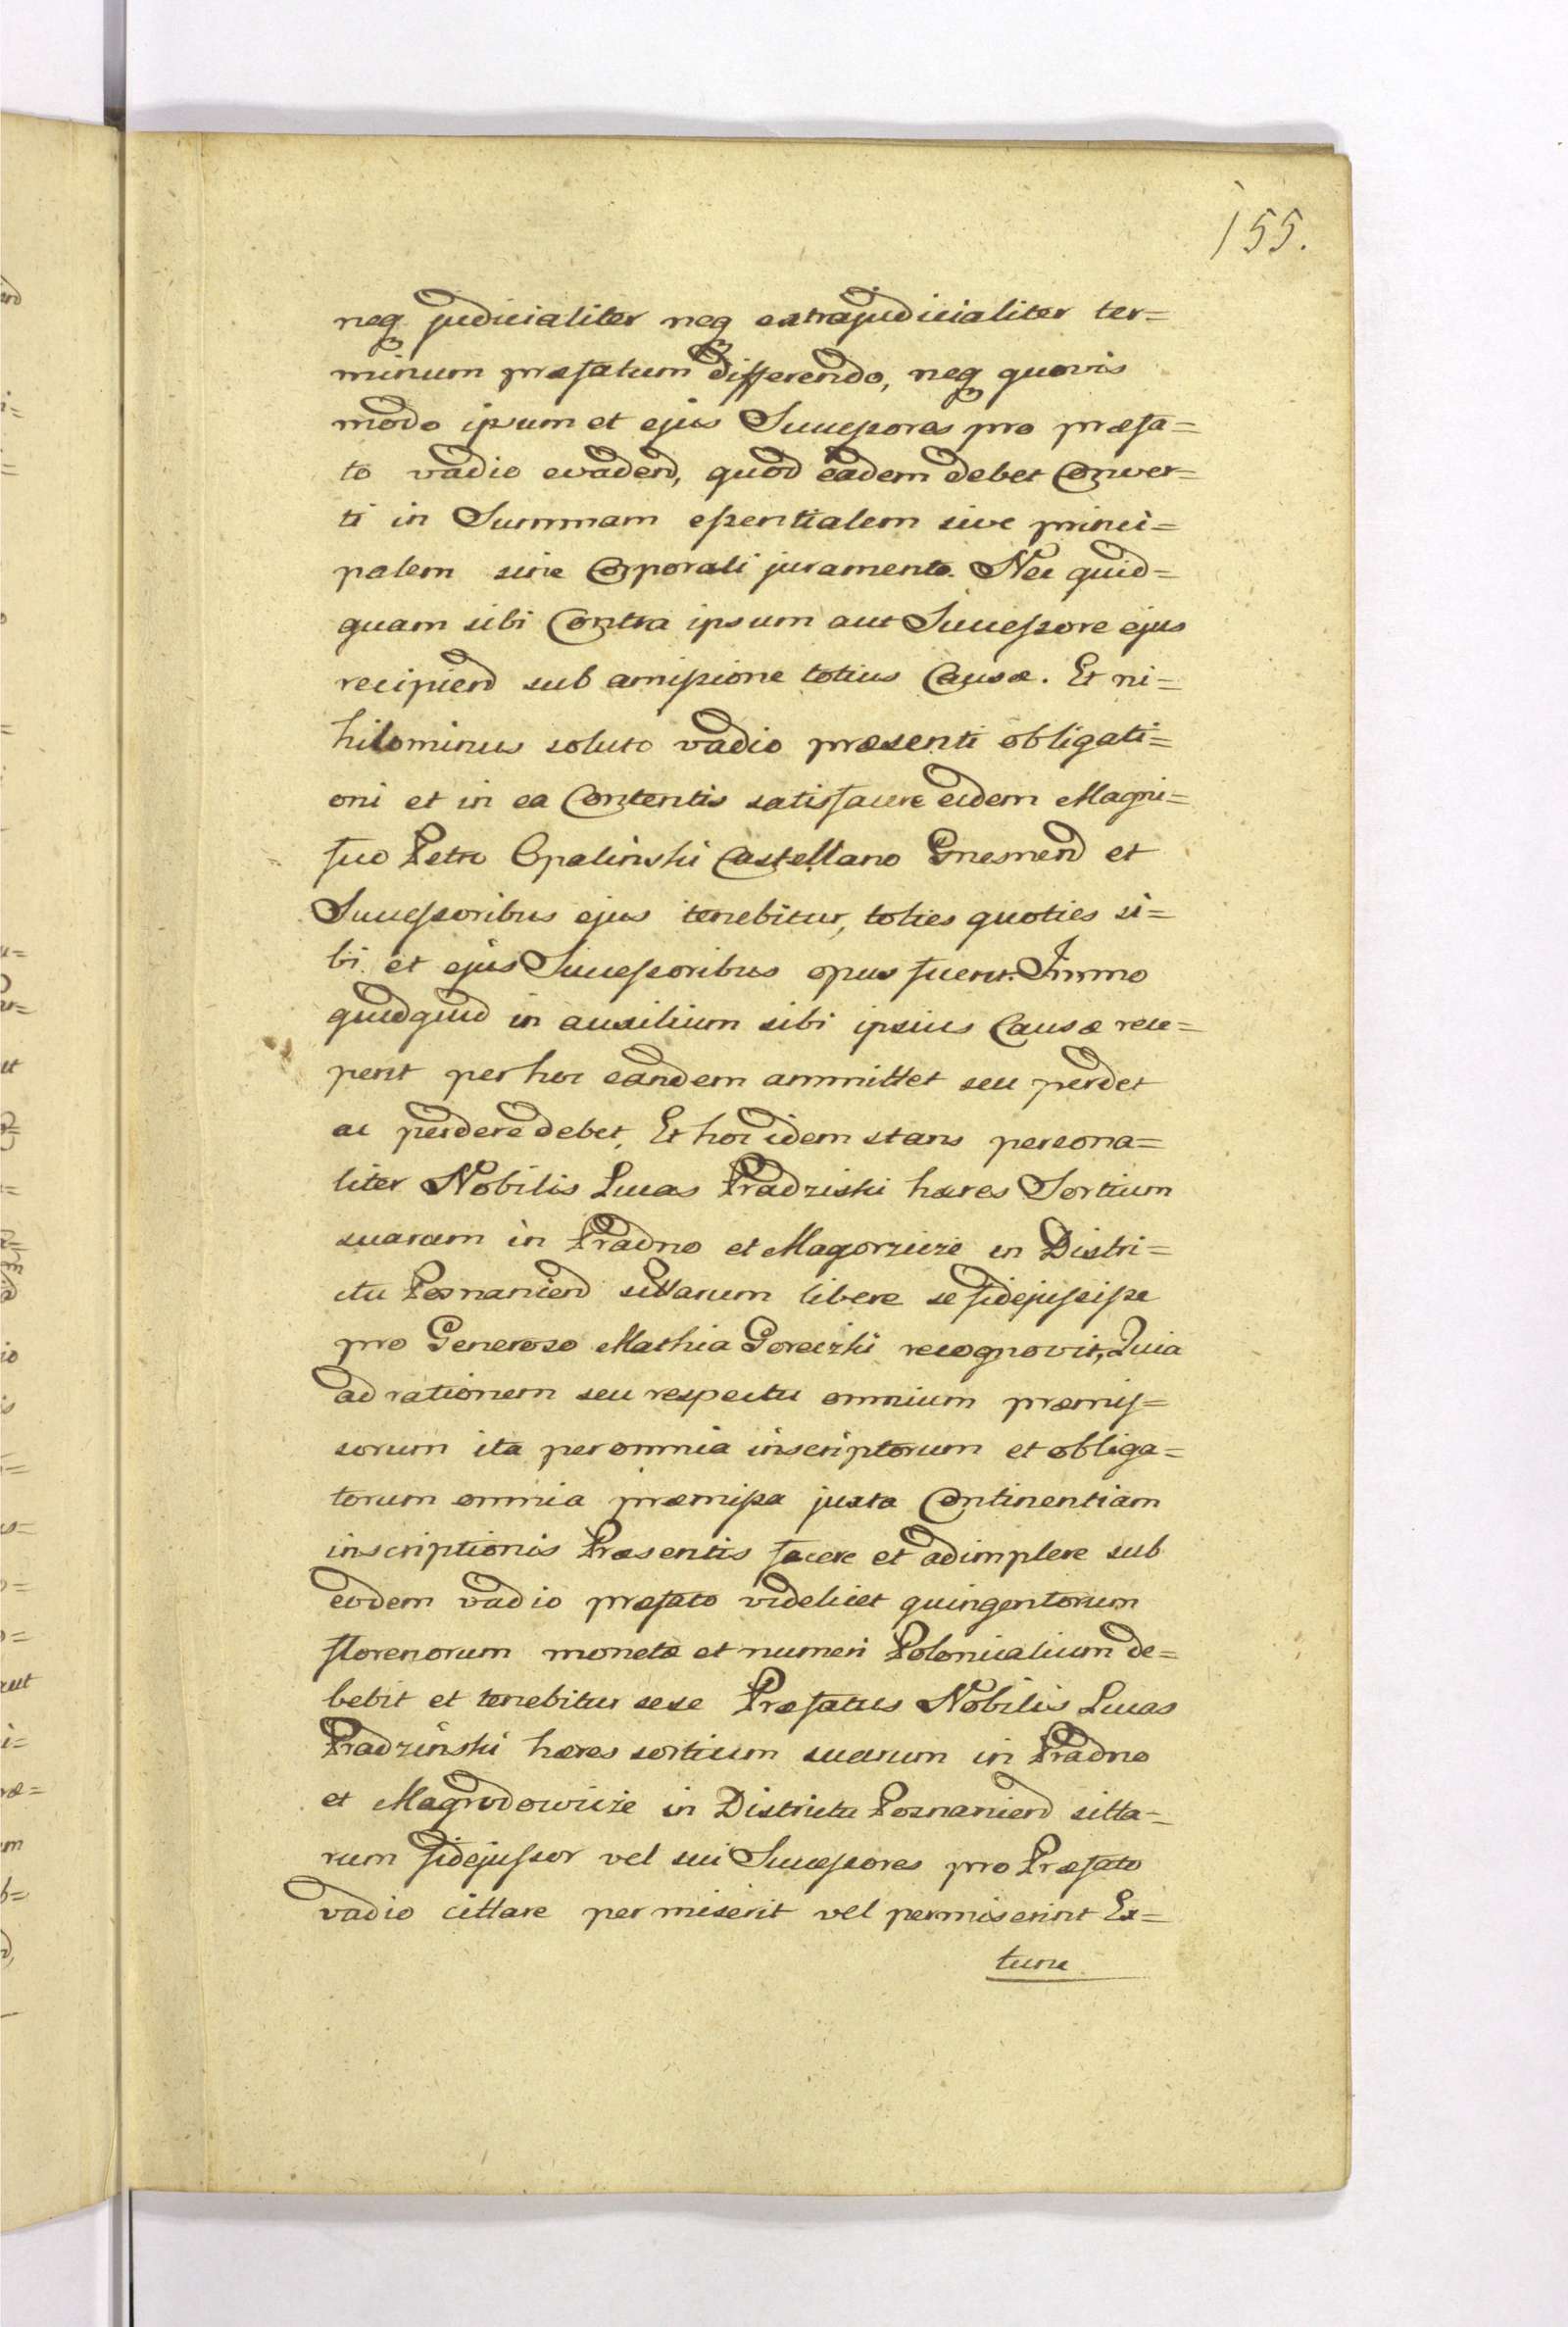 155.
neq judicialiter neq extrajudicialiter ter=
minum præfatum differendo, neq quovis
modo ipsum et ejus Successores pro præfa=
to vadio evadend, quod eadem debet Conver=
ti in Summam essentialem sive princi=
palem sine Corporali juramento. Nec quid=
quam sibi Contra ipsum aut Successore ejus
recipiend sub amissione totius Causæ. Et ni=
hilominus soluto vadio præsenti obligati=
oni et in ea Contentis satisfacere eidem Magni=
fico Petro Opalinski Castellano Gnesnend et
Successoribus ejus tenebitur, toties quoties si=
bi et ejus Successoribus opus fuerit. Immo
quidquid in auxilium sibi ipsius Causæ rece=
perit per hoc eandem ammittet seu perdet
ac perdere debet, Et hoc idem stans persona=
liter Nobilis Lucas Prądziski hæres Sortium
suarum in Prądno et Magorzicze in Distri=
ctu Posnaniend sittarum libere se fidejussisse
pro Generoso Mathia Goreczki recognovit, Quia
ad rationem seu respectu omnium præmis=
sorum ita per omnia inscriptorum et obliga=
torum omnia præmissa juxta Continentiam
inscriptionis Præsentis facere et adimplere sub
eodem vadio præfato videlicet quingentorum
florenorum monetæ et numeri Polonicalium de=
bebit et tenebitur sese Præfatus Nobilis Lucas
Prądzinski hæres sortium suarum in Prądno
et Magrodowicze in Districtu Posnaniend sitta=
rum fidejussor vel sui Successores pro Præfato
vadio cittare permiserit vel permiserint Ex=
tunc